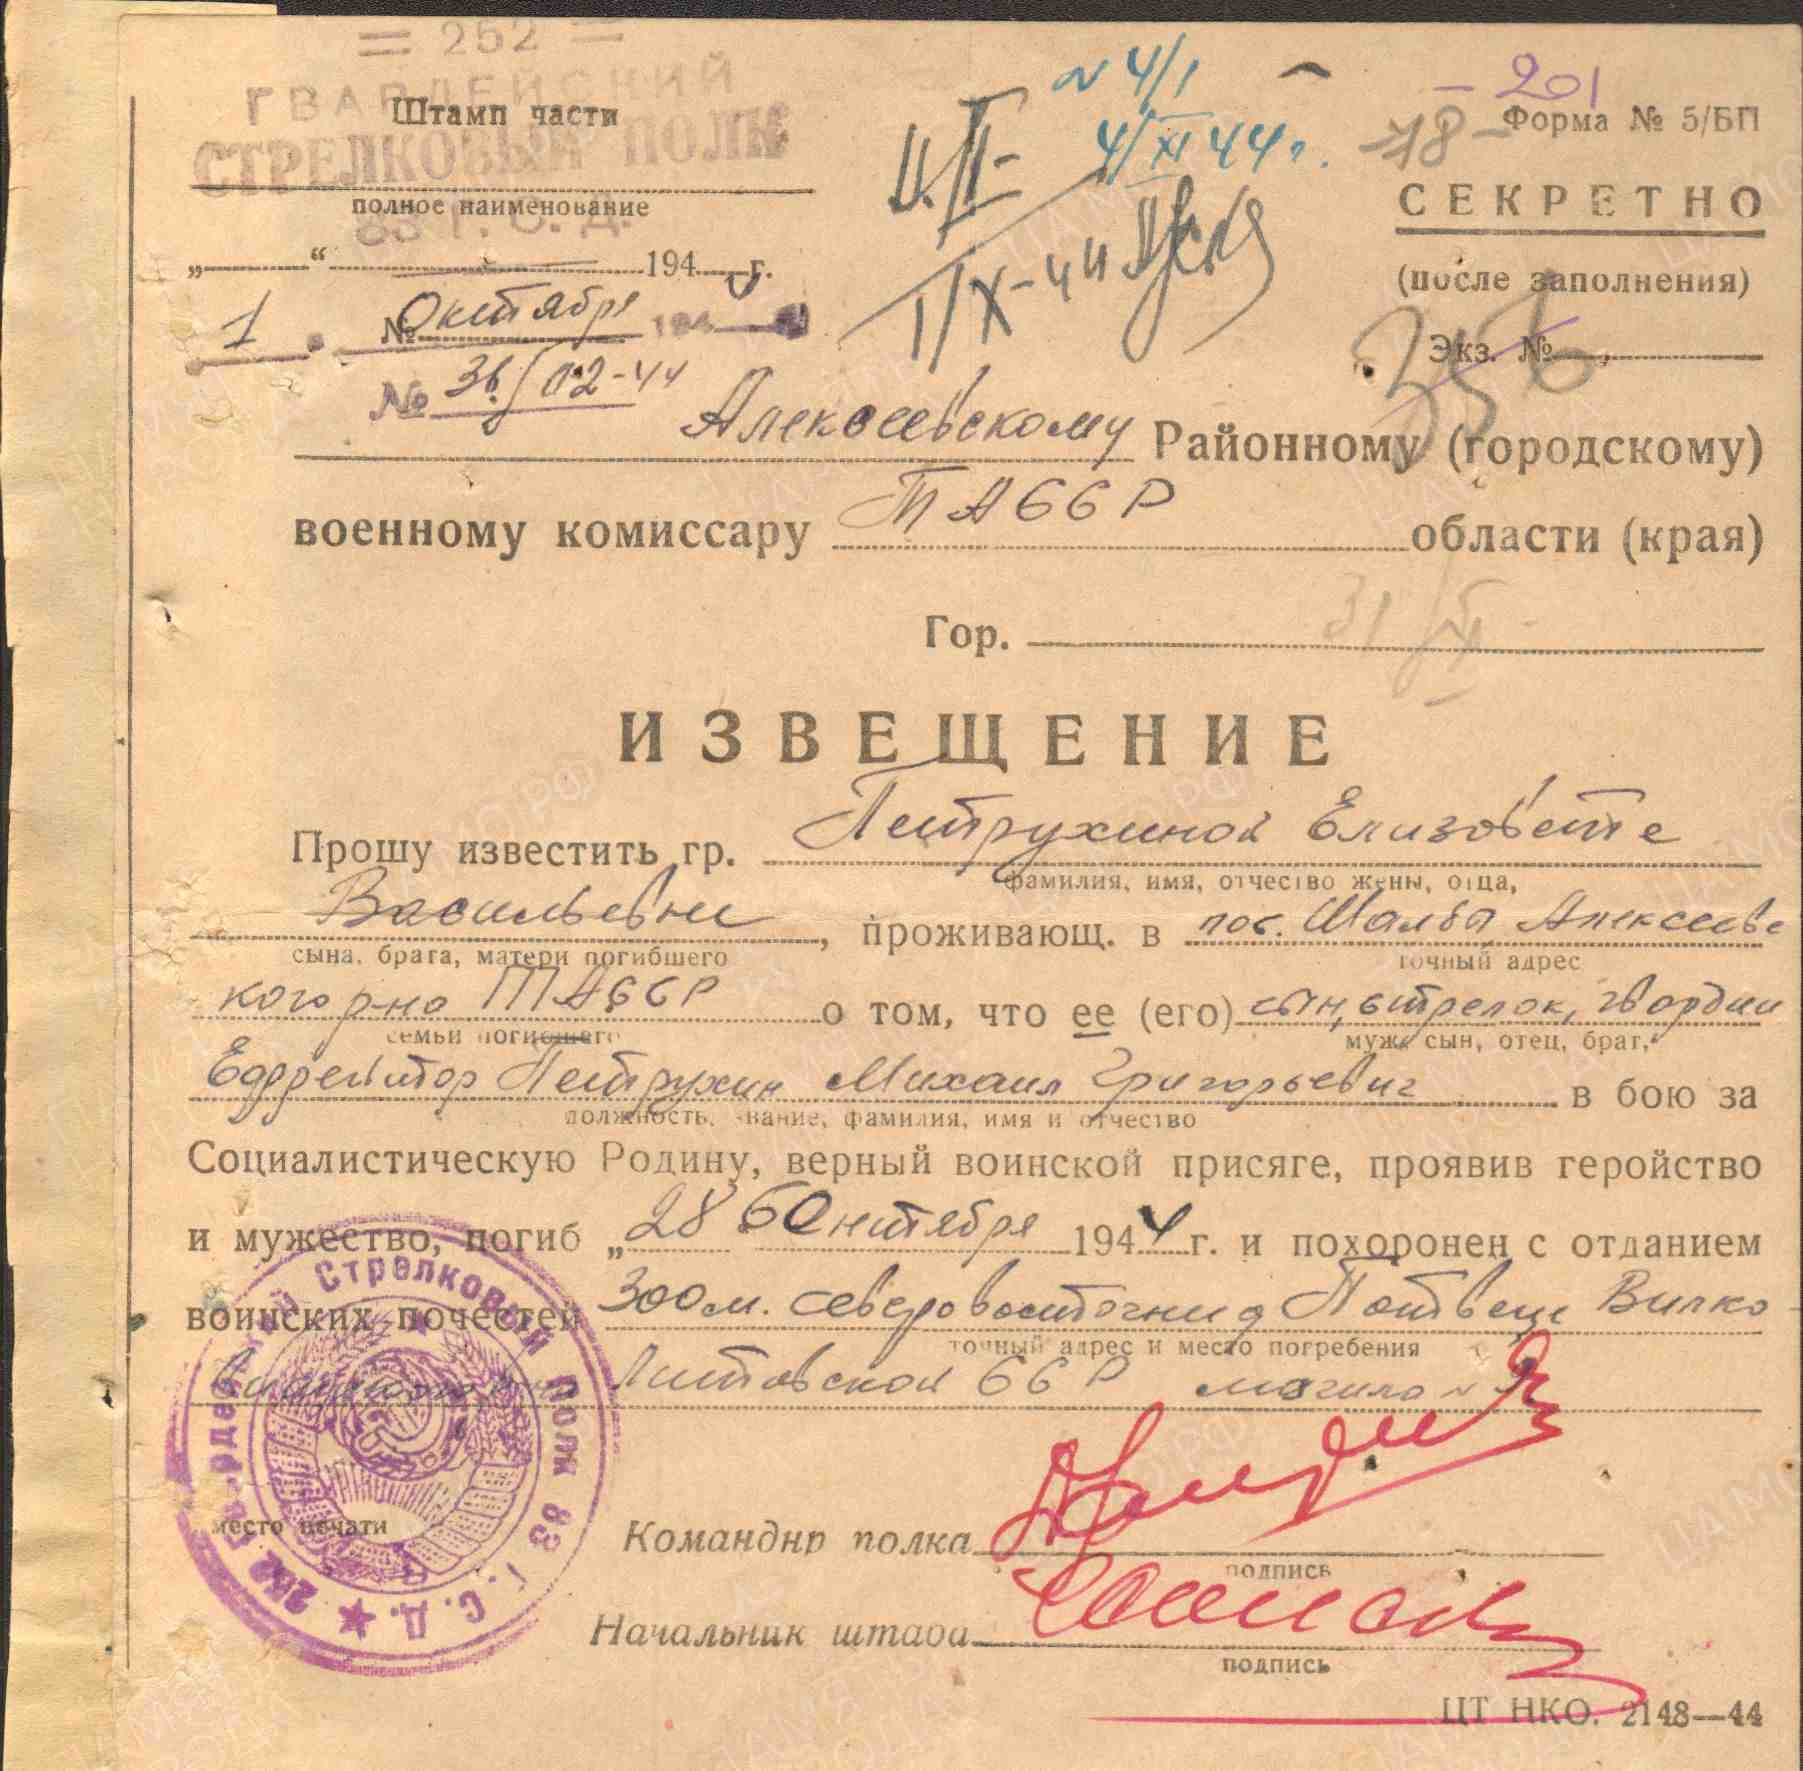 = 252 =
ГВАРДЕЙСКИЙ
Штамп части
СТРЕЛКОВЫЙ ПОЛК
полное наименование
83 Г. С. Д.
„ “ 194 г.
1 Октября 194
№
№ 36/02-44
N 4/1
4/XI 44 г.
I/X-44
- 201
Форма № 5/БП
-78-
СЕКРЕТНО
(после заполнения)
Экз. №
Алексеевскому Районному (городскому)
военному комиссару ТАССР области (края)
Гор.
ИЗВЕЩЕНИЕ
Прошу известить гр. Петрухиной Елизовете
фамилия, имя, отчество жены, отца,
Васильевне, проживающ. в пос. Шалбы Алексеевс
сына, брата, матери погибшего точный адрес
кого р-на ТАССР о том, что ее (его) сын, стрелок, гвардии
семьи погибшего муж, сын, отец, брат,
Ефрейтор Петрухин Михаил Григорьевич в бою за
должность, звание, фамилия, имя и отчество
Социалистическую Родину, верный воинской присяге, проявив геройство
и мужество, погиб „28 Сентября 1944 г. и похоронен с отданием
воинских почестей 300 м. северовосточнее д Вилко-
точный адрес и место погребения
Литовской ССР могила N
место печати
252 Гвардейский Стрелковый Полк 83 Г. С. Д.
Командир полка
подпись
Начальник штаба
подпись
ЦТ НКО. 2148—44